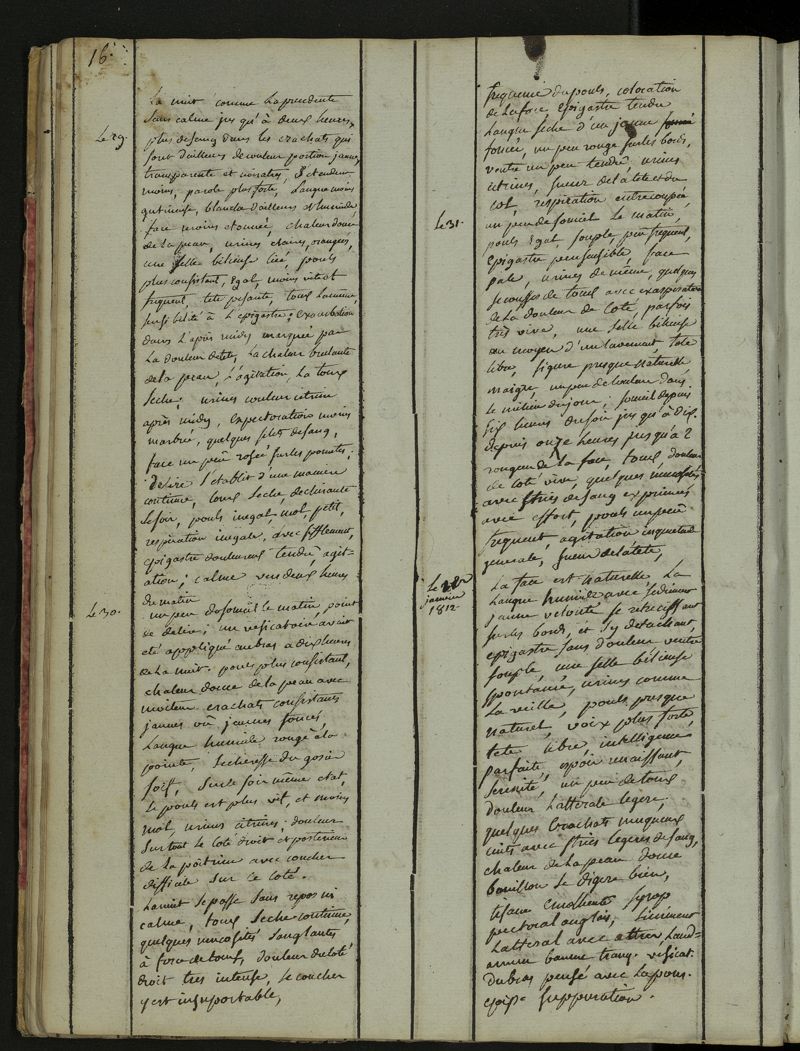 16.
La nuit comme la precedente
sans calme jusqu'à deux heures,
Le 29. plus de sang dans les crachats qui
sont d'ailleurs de couleur portion jaune,
transparente et noiratre,
moins, parole plus forte, Langue moins
blanche d'ailleurs et humide,
face moins etonnée, chaleur douce
de la peau, urines claires, orangées,
une selle bilieuse liée, pouls
plus consistant, egal, moins vite et
frequent, tete pesante, toux la même,
sensibilité à l'epigastre; exacerbation
dans l'après midy marquée par
la douleur de tete, la chaleur brulante
de la peau, l'agitation, la toux
seche; urines couleur citrine
après midy, expectoration moins
marbrée, quelques filets de sang,
face un peu rosée sur les pomettes;
delire s'etablit d'une maniere
continue, toux seche, dechirante
le soir, pouls inegal, mol, petit,
respiration inegale, avec sifflement,
epigastre douloureux tendu, agit-
ation; calme vers deux heures
du matin
Le 30. un peu de someil le matin, point
de delire; un vesicatoire avait
eté appliqué au bras a dix heures
de la nuit. pouls plus consistant,
chaleur douce de la peau avec
moiteur. crachats consistants
jaunes ou jaunes foncés,
Langue humide rouge à la
pointe, secheresse du gosier
soif, sur le soir même etat,
le pouls est plus vif, et moins
mol, urines citrines; douleur
surtout le coté droit et posterieur
de la poitrine avec coucher
difficile sur ce coté.
La nuit se passe sans repos ni
calme, toux seche continue,
quelques mucosités sanglantes
à force de toux, douleur du coté
droit tres intense, le coucher
y est insuportable,
frequence du pouls, coloration
de la face, epigastre tendu
Langue seche d'un jaune
foncée, un peu rouge sur les bords,
ventre un peu tendu, urines
citrines, sueur de la tete et du
col, respiration entrecoupée,
Le 31. un peu de someil le matin,
pouls egal, souple, peu frequent,
epigastre peu sensible, face
pale, urines de même, quelques
secousses de toux avec exasperation
de la douleur de coté, parfois
très vive, une selle bilieuse
au moyen d'un lavement, tete
libre, figure presque naturelle
maigre, un peu de couleur dans
le milieu du jour; someil depuis
six heures du soir jusqu'à dix.
depuis onze heures jusqu'à 2
rougeur de la face, toux douleur
de coté vive, quelques mucosités
avec stries de sang exprimées
avec effort, pouls un peu
frequent, agitation inquietude
generale, sueur de la tete,
Le 1er
janvier
1812. La face est naturelle, la
Langue humide avec sediment
jaune velouté se retrecissant
sur les bords, et s'y detachant,
epigastre sans douleur ventre
souple une selle bilieuse
spontanée, urines comme
la veille, pouls presque
naturel, voix plus forte,
tete libre, intelligence
parfaite, espoir renaissant,
serenité, un peu de toux,
douleur latterale legere,
quelques crachats muqueux
cuits avec stries legeres de sang,
chaleur de la peau douce
bouillon se digere bien,
tisane emolliente syrop
pectoral anglais, liniment
latteral avec
baume tranq. vesicat.
du bras pansé avec la pom.
episp. suppuration.